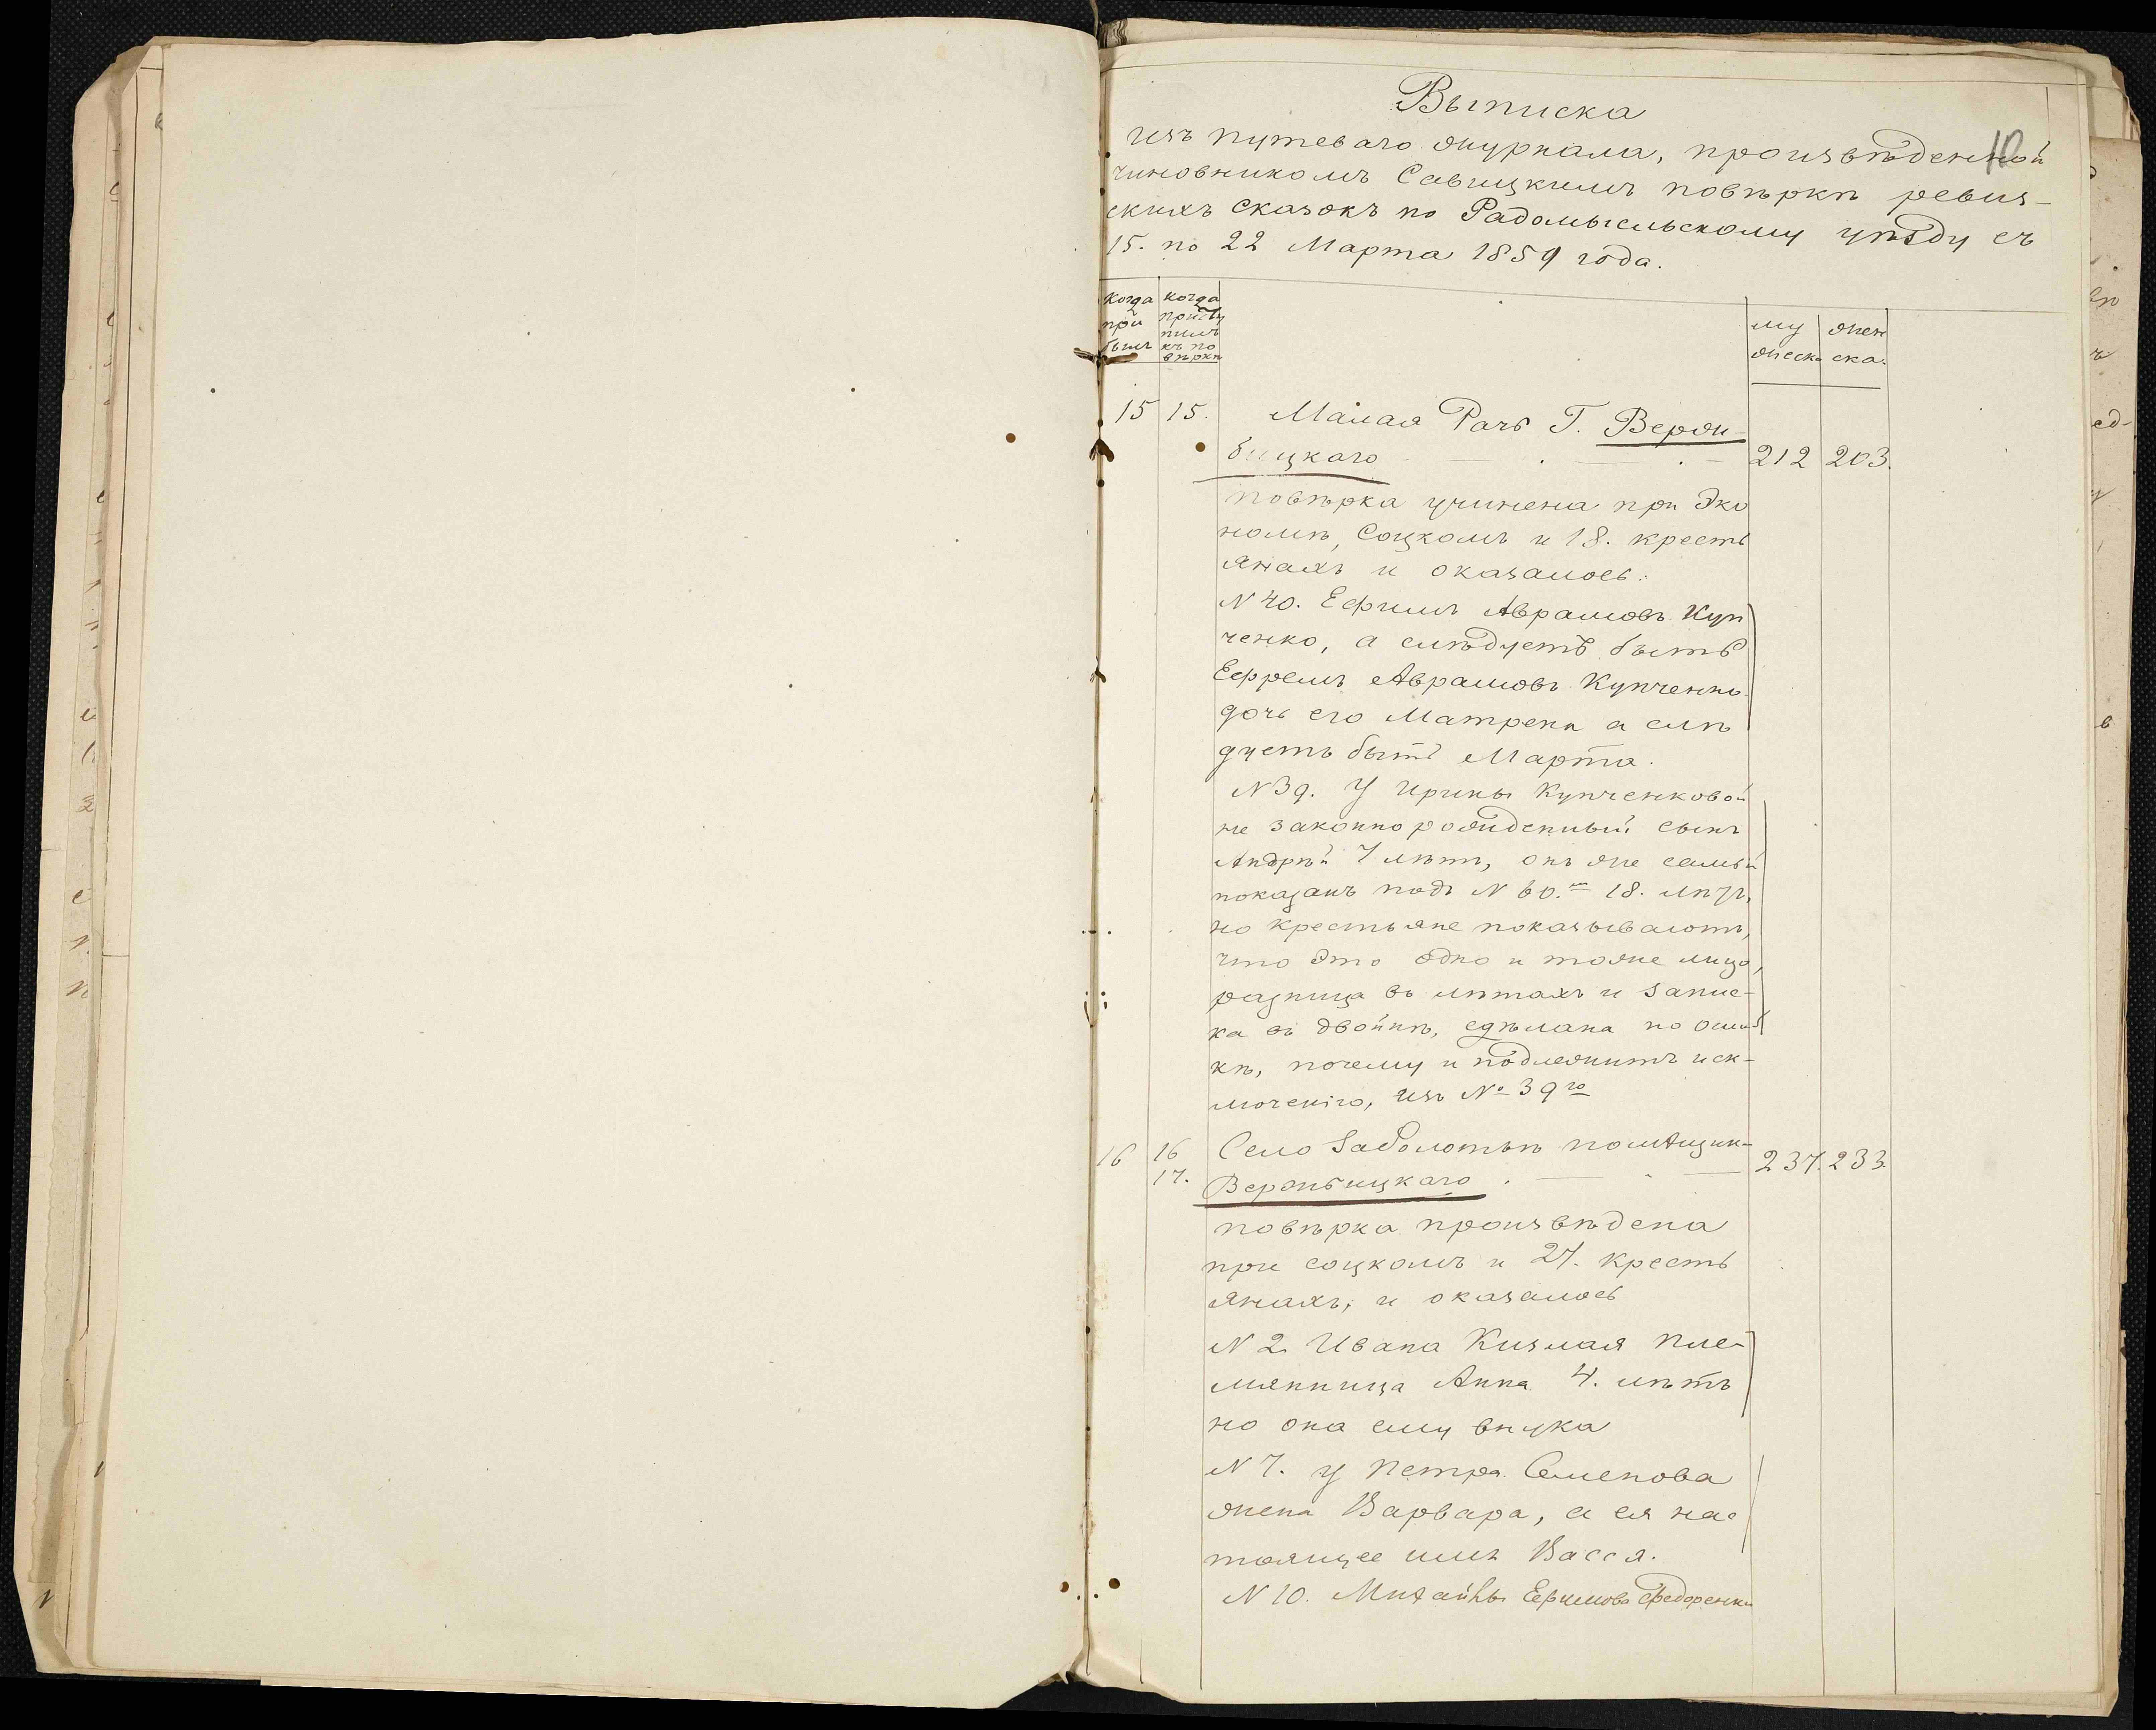 Выписка
10
изъ путеваго журнала, произвѣденной
чиновникомъ Савицкимъ повѣрки ревиз-
скихъ сказокъ по Радомысльскому уѣзду съ
15. по 22 Марта 1859 года.
когда при былъ
когда присту пилъ къ по вѣркѣ
му жеска
жен ска.
15 15. Малая Рачь Г. Верж-
бицкаго 212 203.
повѣрка учинена при Эко
номѣ, Соцкомъ и 18. кресть
янахъ и оказалось:
N 40. Ефимъ Аврамовъ Куп
ченко, а слѣдуетъ быть
Ефремъ Аврамовъ Купченко.
дочь его Матрена а слѣ
дуетъ быть Марта.
N 39. У Ирины Купченковой
не законно рожденный сынъ
Андрѣй 7 лѣтъ, онъ же самый
показанъ подъ N 60.мъ 18. лѣтъ,
но крестьяне показываютъ,
что это одно и тоже лицо,
разница въ лѣтахъ и запис-
ка въ двойнѣ, сдѣлана по ошиб
кѣ, почему и подлежитъ иск-
люченію, изъ № 39го
16 16 Село Заболотье помѣщик-
17. Вержбицкаго. 237. 233.
повѣрка произвѣдена
при соцкомъ и 27. кресть
янахъ, и оказалось
N 2 Ивана Кизлая пле-
мянница Анна 4. лѣтъ
но она ему внука
N 7. У Петра Семенова
жена Варвара, а ея нас
тоящее имя Васса.
N 10. Михайлы Ефимова Федоренки